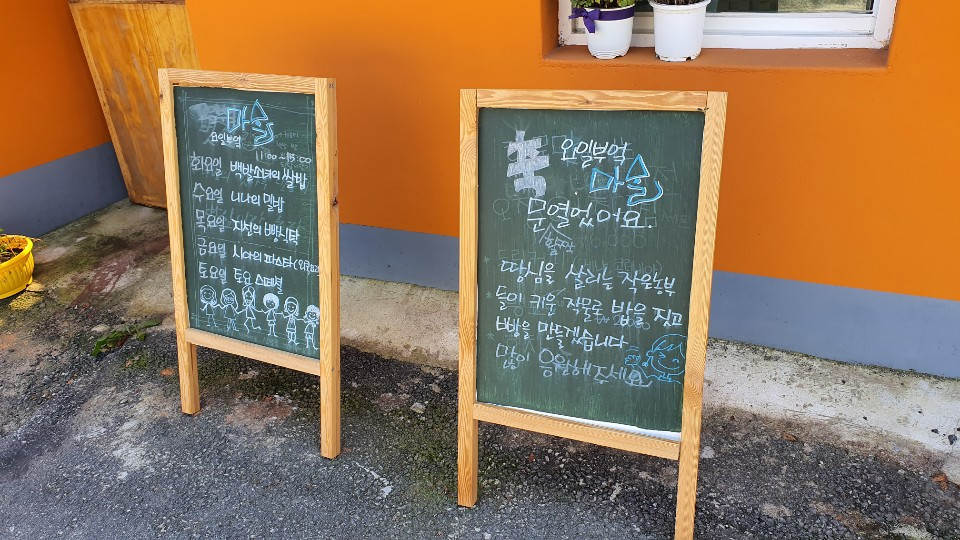 마슬
요일부엌
11:00-15:00
화요일 백발소녀의 쌀밥
수요일 니나의 밀밥
목요일 지성의 빵식탁
금요일 시아의 파스타
토요일 토요 스페셜
요일부엌
마슬
문열었어요.
활짝
땅심을 살리는 작은농부
들이 키운 작물로 밥을 짓고
빵을 만들겠습니다
많이 응원해주세요